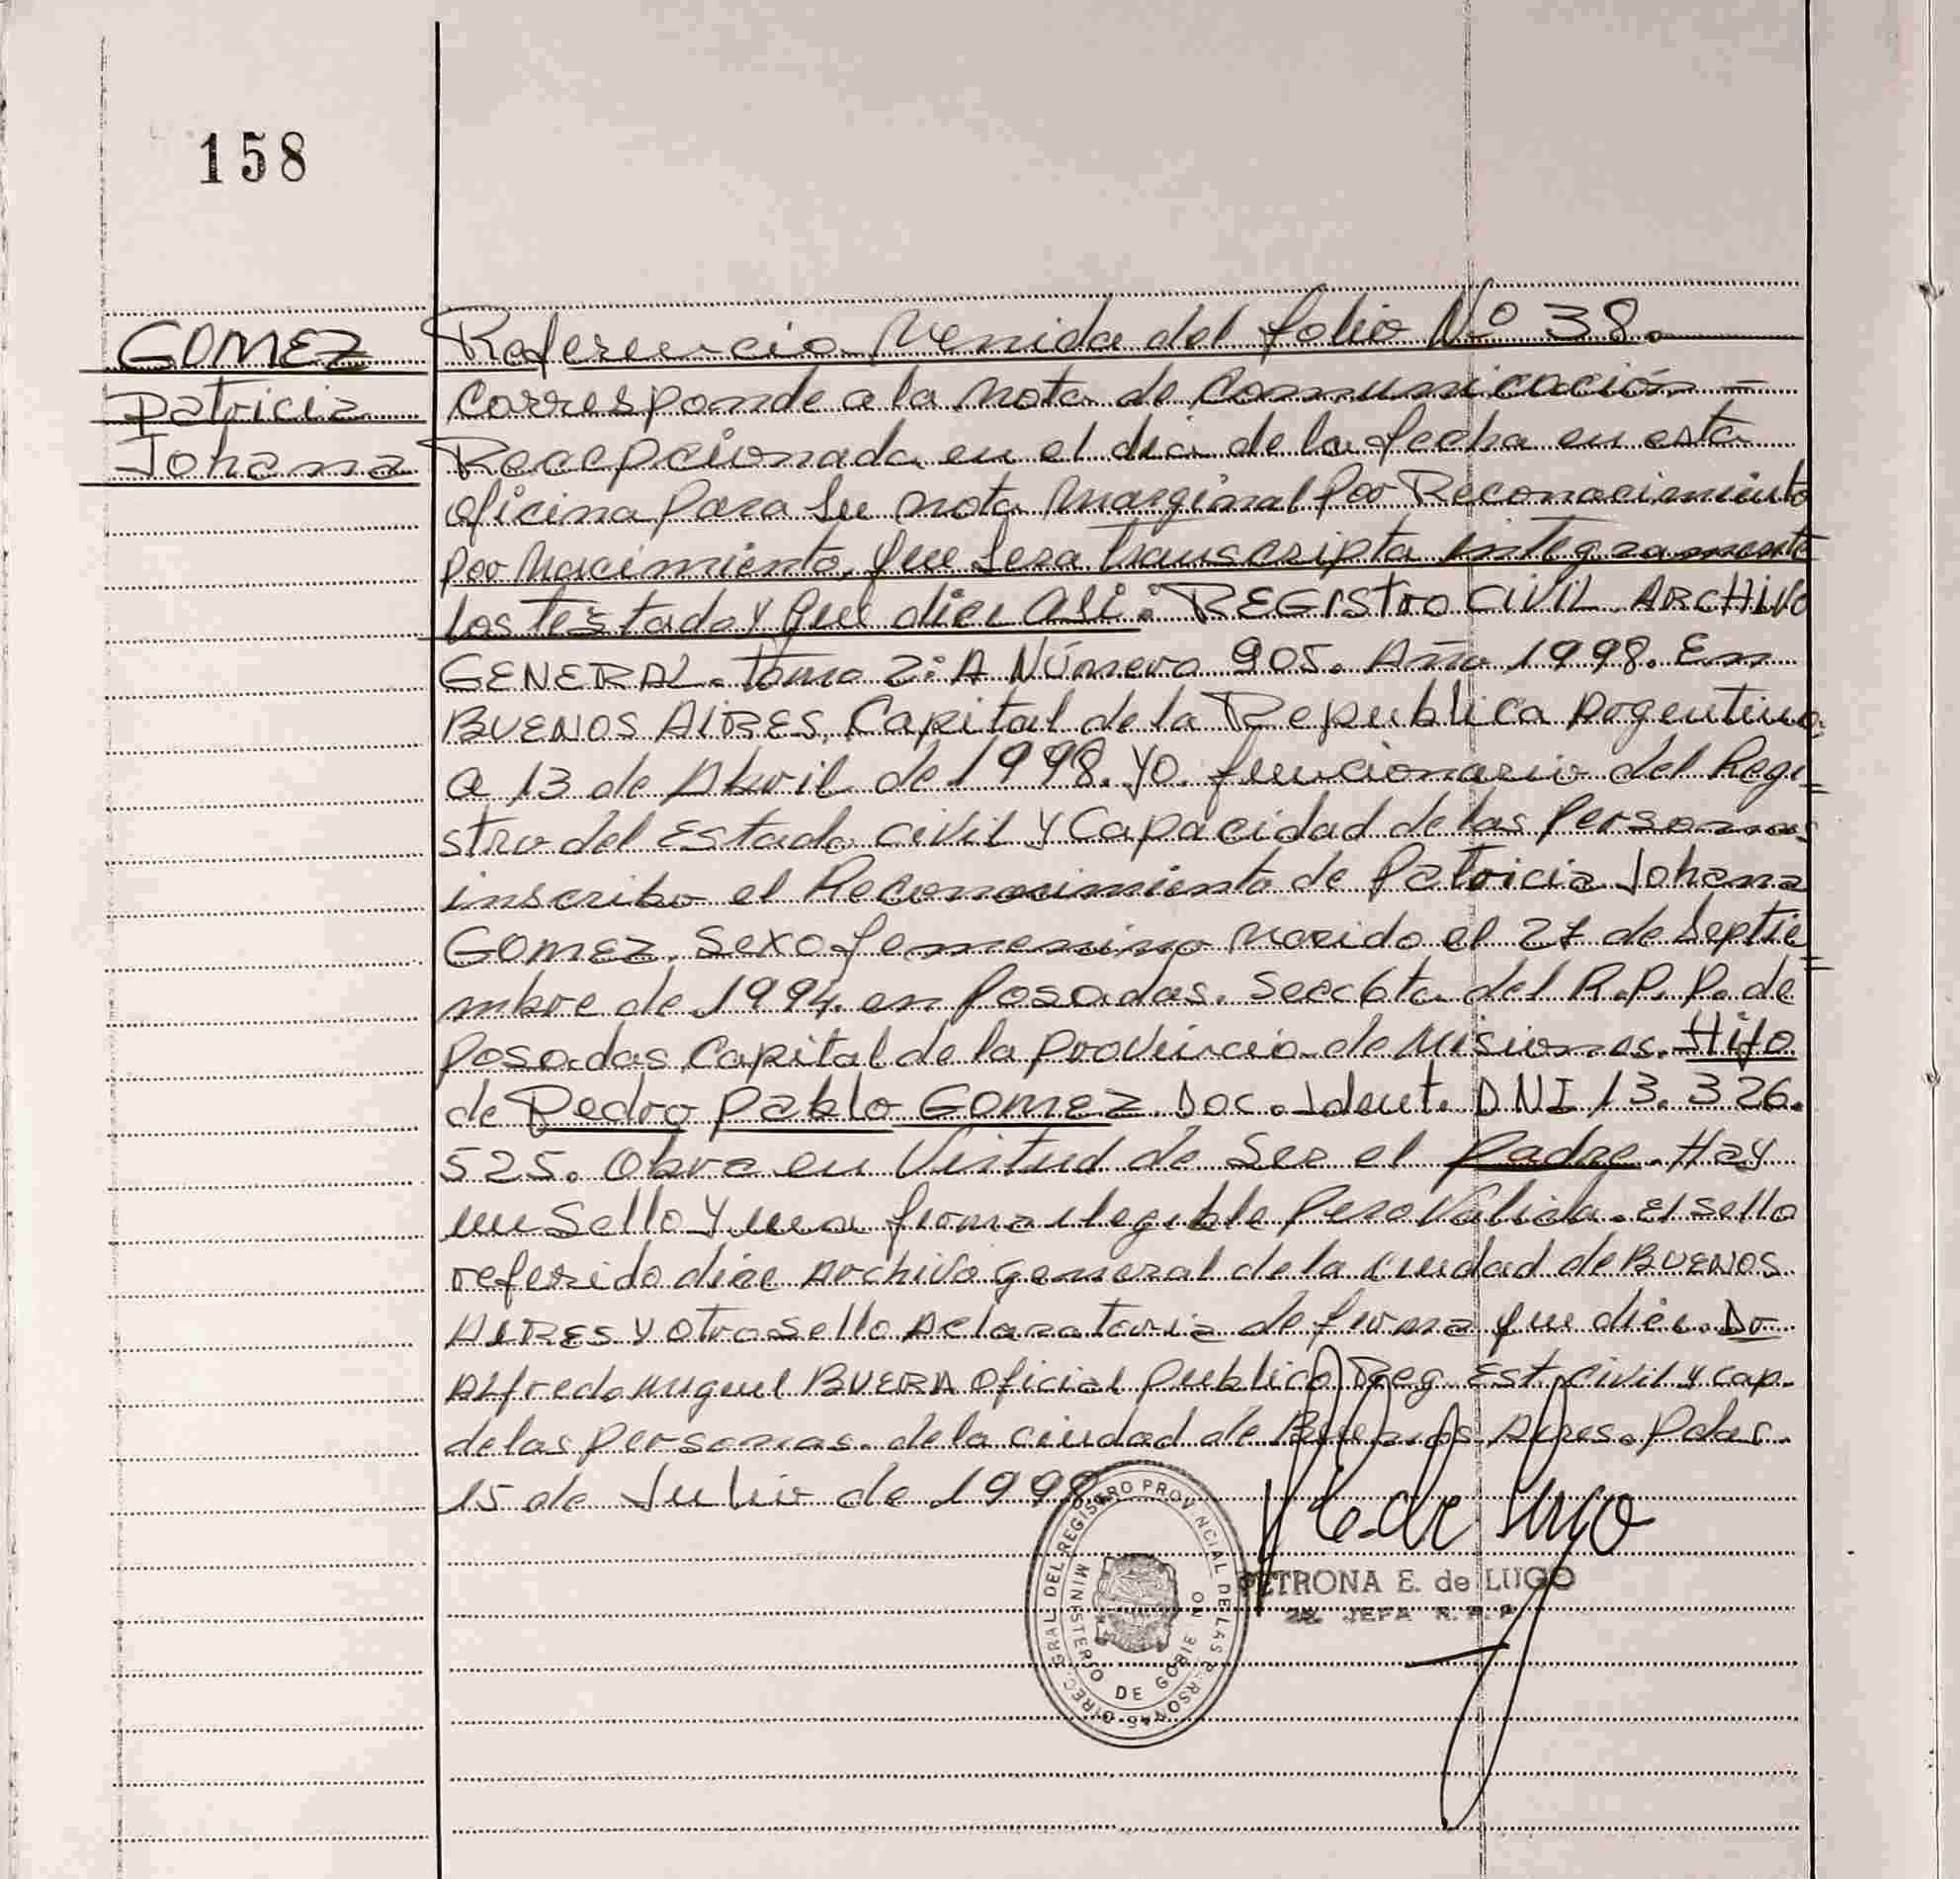 158
GOMEZ
Patricia
Johana
Referencia Venida del folio Nº 38.
Corresponde a la nota de Comunicación -
Recepcionada en el dia de la fecha en esta
oficina para su nota marginal por Reconocimiento
por Nacimiento, que sera transcripta integramente
los testado y que dice asi: REGIStro CIVIL ARCHIVO
GENERAL. Tomo 2: A Número 905. Año 1998. En
BUENOS AIRES, Capital de la Republica Argentina,
a 13 de Abril de 1998. Yo funcionario del Regi=
stro del Estado civil y Capacidad de las Personas
inscribo el Reconocimiento de Patricia Johana
GOMEZ. Sexo femenino Nacido el 27 de Septie=
mbre de 1994. en Posadas. Secc 6ta del R.P.P. de
Posadas Capital de la provincia de Misiones. Hijo
de Pedro Pablo GOMEZ. Doc. Ident. DNI 13.326.
525. Obra en Virtud de Ser el padre. Hay
un Sello y una firma ilegible pero Valida. El sello
referido dice Archivo general de la ciudad de BUENOS
AIRES y otro sello Aclaratoria de firma que dice. Dr
Alfredo Miguel BUERA oficial publico Reg. Est. civil y cap.
de las personas. de la ciudad de Buenos Aires. Pdas.
15 de Julio de 1998
DIREC. GRAL DEL REGISTRO PROVINCIAL DE LAS PERSONAS
MINISTERIO DE GOBIERNO
P E. de Lugo
PETRONA E. de LUGO
2a. JEFA R.P.P.